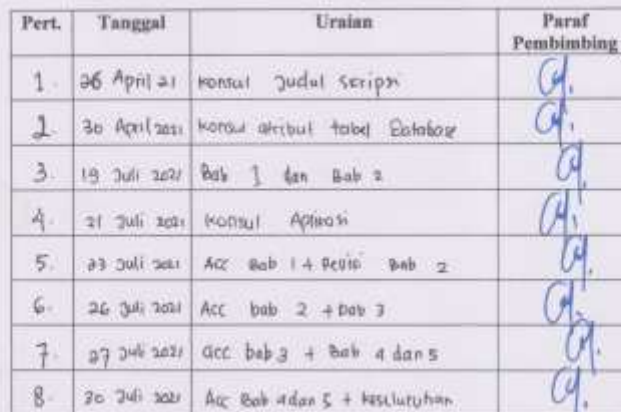 Pert. Tanggal Uraian Paraf
Pembimbing
1. 26 April 21 Konsul Judul Scripsi
2. 30 April 2021 Konsul atribut tabel Database
3. 19 Juli 2021 Bab 1 dan Bab 2
4. 21 Juli 2021 Konsul Aplikasi
5. 23 Juli 2021 Acc Bab 1 + Revisi Bab 2
6. 26 Juli 2021 Acc bab 2 + bab 3
7. 27 Juli 2021 acc bab 3 + Bab 4 dan 5
8. 30 Juli 2021 Acc Bab 4 dan 5 + keseluruhan